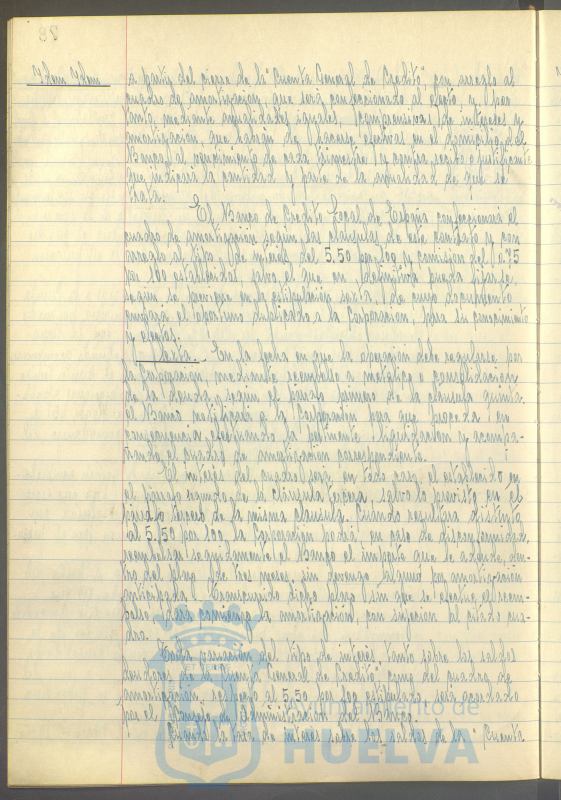 78
Idem Idem
a partir del cierre de la "Cuenta General de Credito", con arreglo al
cuadro de amortización, que será confeccionado al efecto, y, por
tanto, mediante anualidades iguales, comprensivas de intereses y
amortización, que habrán de hacerse efectivas en el domicilio del
Banco, al vencimiento de cada trimestre y contra recibo o justificante
que indicará la cantidad y parte de la anualidad de que se
trata.
El Banco de Credito Local de España confeccionará el
cuadro de amortización según las cláusulas de este contrato y con
arreglo al tipo de interés del 5.50 por 100 y comision del 0.75
por 100 establecidos, salvo el que en definitiva pueda fijarse,
según se previene en la estipulación sexta, de cuyo documento
enviará el oportuno duplicado a la Corporacion, para su conocimiento
y efectos.
Sexta. En la fecha en que la operación debe regularse por
la Corporación, mediante reembolso a metálico o consolidación
de la deuda según el párrafo primero de la cláusula quinta,
el Banco notificará a la Corporación para que proceda en
consecuencia, efectuando la pertinente liquidación y acompa-
ñando el cuadro de amortización correspondiente.
El interés del cuadro será, en todo caso, el establecido en
el párrafo segundo de la cláusula tercera, salvo lo previsto en el
párrafo tercero de la misma clausula. Cuando resultara distinto
al 5.50 por 100, la Corporación podrá, en caso de disconformidad,
reembolsar seguidamente al Banco el importe que le adeude, den-
tro del plazo de tres meses, sin devengo alguno por amortización
anticipada. Transcurrido dicho plazo sin que se efectue el reem-
bolso, dará comienzo la amortización, con sujecion al citado cua-
dro.
Toda variación del tipo de interés, tanto sobre los saldos
deudores de "Cuenta General de Credito" como del cuadro de
amortización, respecto al 5.50 por 100 estipulado, será acordado
por el Consejo de Administración del Banco.
Cuando la tasa de interés sobre los saldos de la "Cuenta
Ayuntamiento de
HUELVA